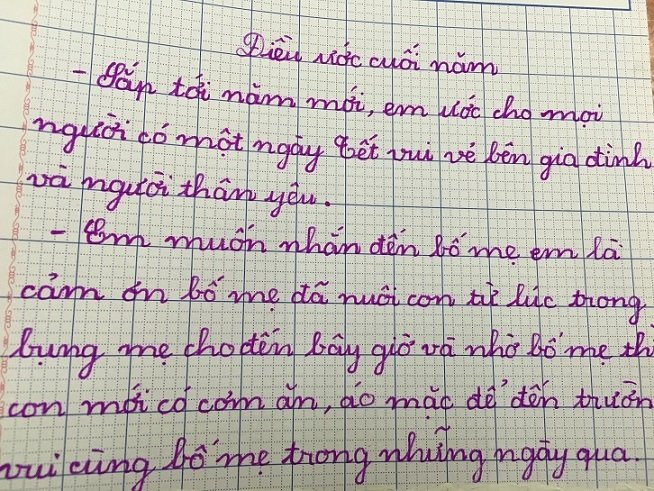 Điều ước cuối năm
- Sắp tới năm mới, em ước cho mọi
người có một ngày Tết vui vẻ bên gia đình
và người thân yêu.
- Em muốn nhắn đến bố mẹ em là
cảm ơn bố mẹ đã nuôi con từ lúc trong
bụng mẹ cho đến bây giờ và nhờ bố mẹ th
con mới có cơm ăn, áo mặc để đến trườn
vui cùng bố mẹ trong những ngày qua.